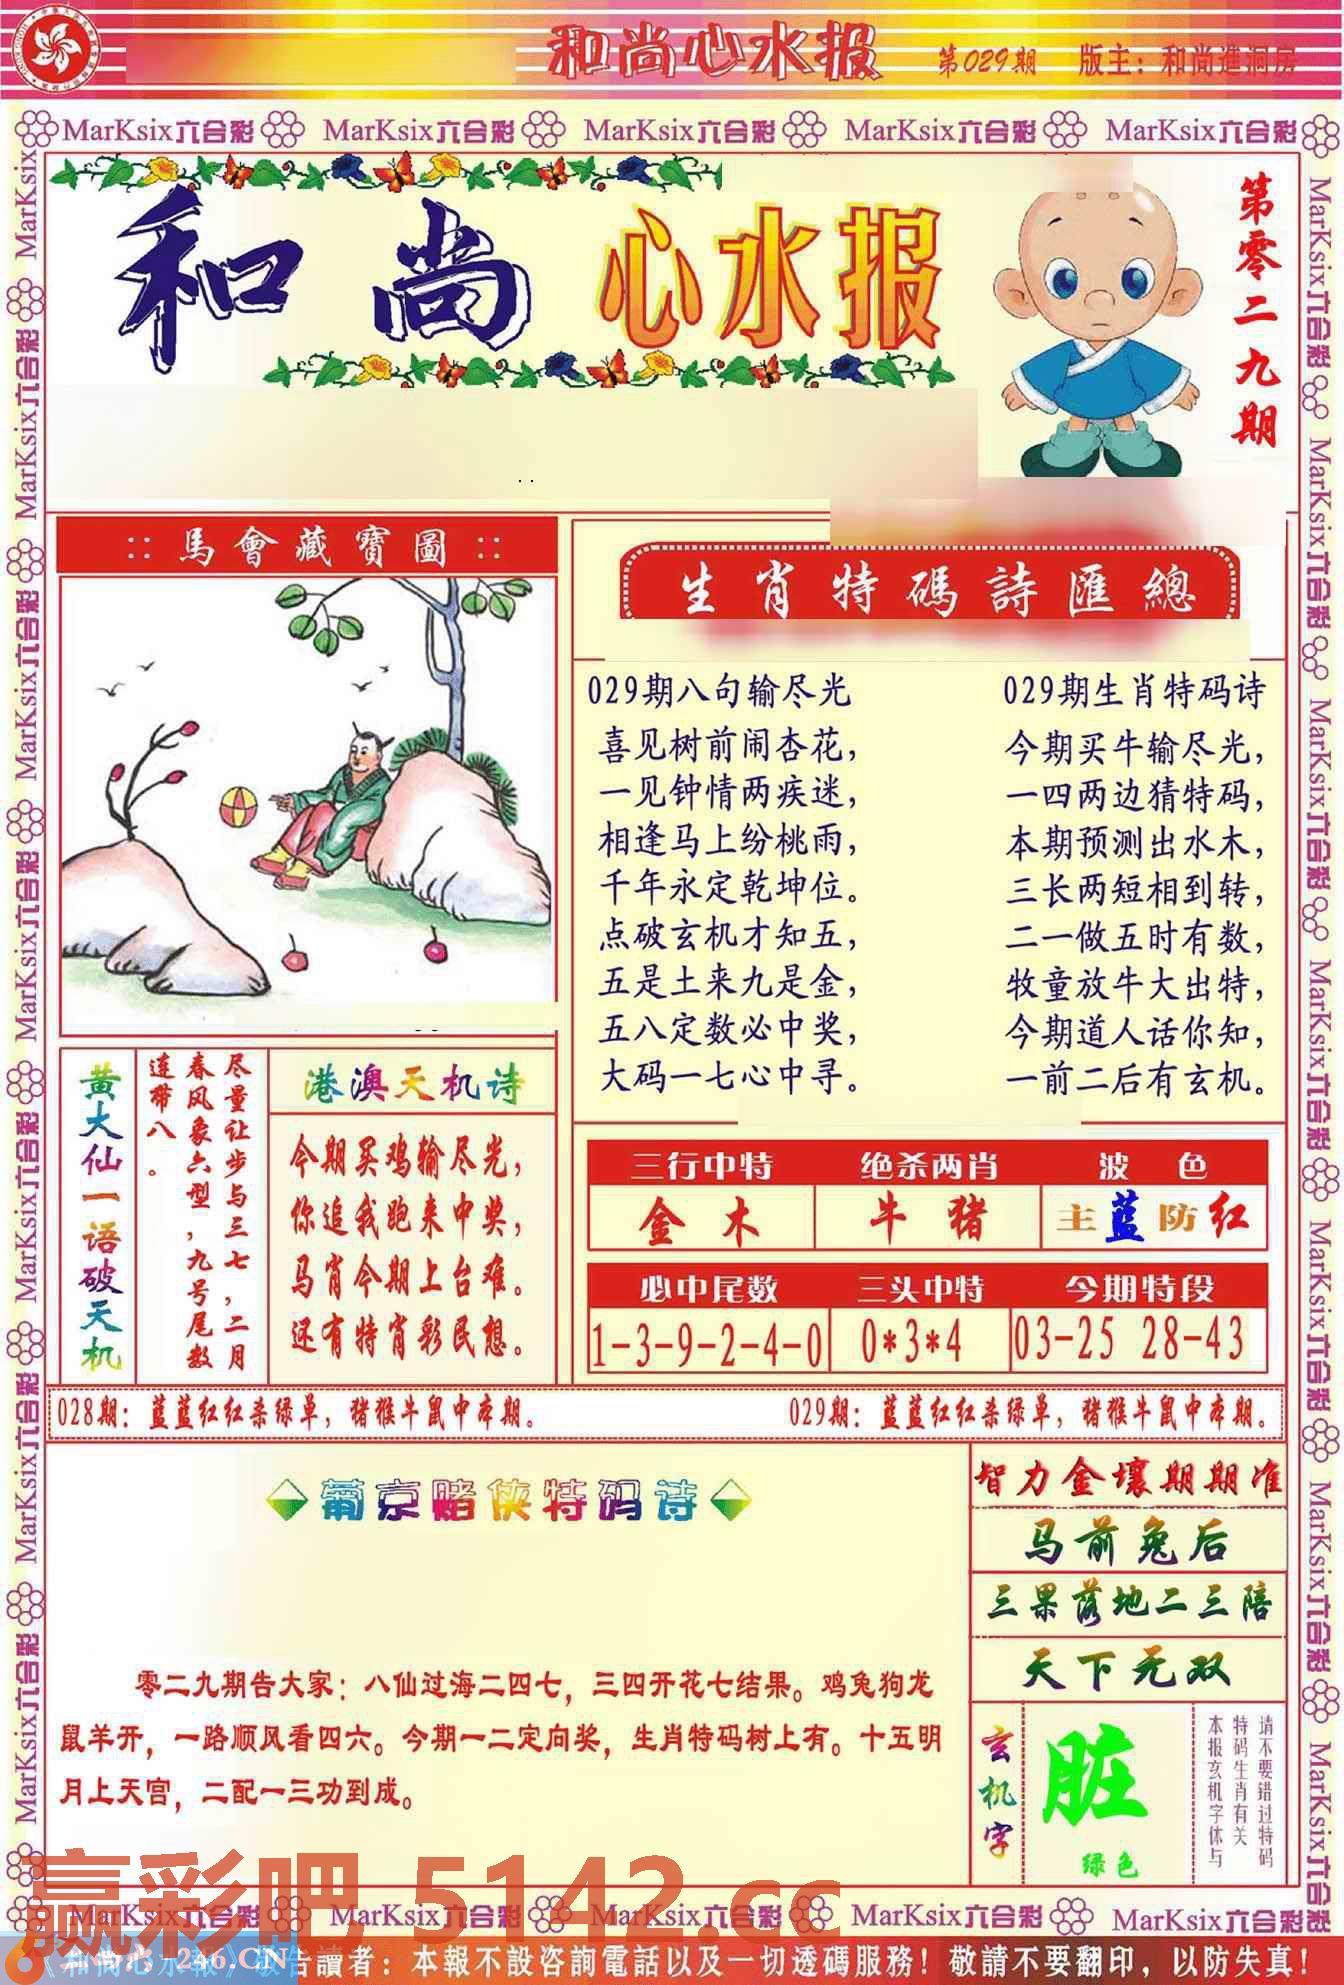 和尚心水报 第029期 版主：和尚進洞房
MarKsix六合彩 MarKsix六合彩 MarKsix六合彩 MarKsix六合彩 MarKsix六合彩
和尚心水报
第零二九期
:: 馬會藏寶圖 ::
生肖特碼詩匯總
029期八句输尽光
喜见树前闹杏花，
一见钟情两疾迷，
相逢马上纷桃雨，
千年永定乾坤位。
点破玄机才知五，
五是土来九是金，
五八定数必中奖，
大码一七心中寻。
029期生肖特码诗
今期买牛输尽光，
一四两边猜特码，
本期预测出水木，
三长两短相到转，
二一做五时有数，
牧童放牛大出特，
今期道人话你知，
一前二后有玄机。
黄大仙一语破天机
尽量让步与三七，二月
春风象六型，九号尾数
连带八。
港澳天机诗
今期买鸡输尽光，
你追我跑来中奖，
马肖今期上台难。
还有特肖彩民想。
三行中特 绝杀两肖 波色
金木 牛猪 主蓝防红
必中尾数 三头中特 今期特段
1-3-9-2-4-0 0*3*4 03-25 28-43
028期：蓝蓝红红杀绿单，猪猴牛鼠中本期。 029期：蓝蓝红红杀绿单，猪猴牛鼠中本期。
葡京赌侠特码诗
零二九期告大家：八仙过海二四七，三四开花七结果。鸡兔狗龙
鼠羊开，一路顺风看四六。今期一二定向奖，生肖特码树上有。十五明
月上天宫，二配一三功到成。
智力金壤期期准
马前兔后
三果落地二三陪
天下无双
玄机字
脏
绿色
请不要错过特码
特码生肖有关
本报玄机字体与
赢彩吧 5142.cc
MarKsix六合彩 MarKsix六合彩 MarKsix六合彩 MarKsix六合彩 MarKsix六合彩
246.CN
告讀者：本報不設咨詢電話以及一切透碼服務！敬請不要翻印，以防失真！